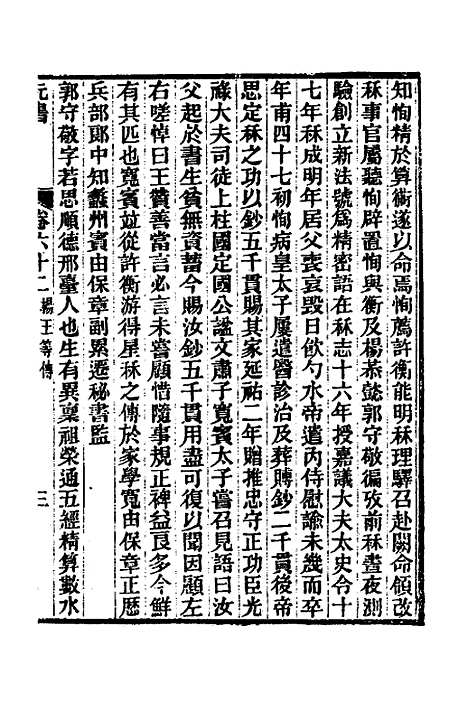 知恂精於算術遂以命焉恂薦許衡能明秝理驛召赴闕命領改
秝事官屬聽恂辟置恂與衡及楊恭懿郭守敬徧攷前秝晝夜測
驗創立新法號爲精密語在秝志十六年授嘉議大夫太史令十
七年秝成明年居父喪哀毀日飲勺水帝遣內侍慰諭未幾而卒
年甫四十七初恂病皇太子屢遣醫診治及葬賻鈔二千貫後帝
思定秝之功以鈔五千貫賜其家延祐二年贈推忠守正功臣光
祿大夫司徒上柱國定國公謚文肅子寬賓太子嘗召見語曰汝
父起於書生貧無資蓄今賜汝鈔五千貫用盡可復以聞因顧左
右嗟悼曰王贊善當言必言未嘗顧惜隨事規正裨益良多今鮮
有其匹也寬賓竝從許衡游得星秝之傳於家學寬由保章正歷
兵部郎中知蠡州賓由保章副累遷秘書監
郭守敬字若思順德邢臺人也生有異稟祖榮通五經精算數水
元書 卷六十二 楊王等傳 三